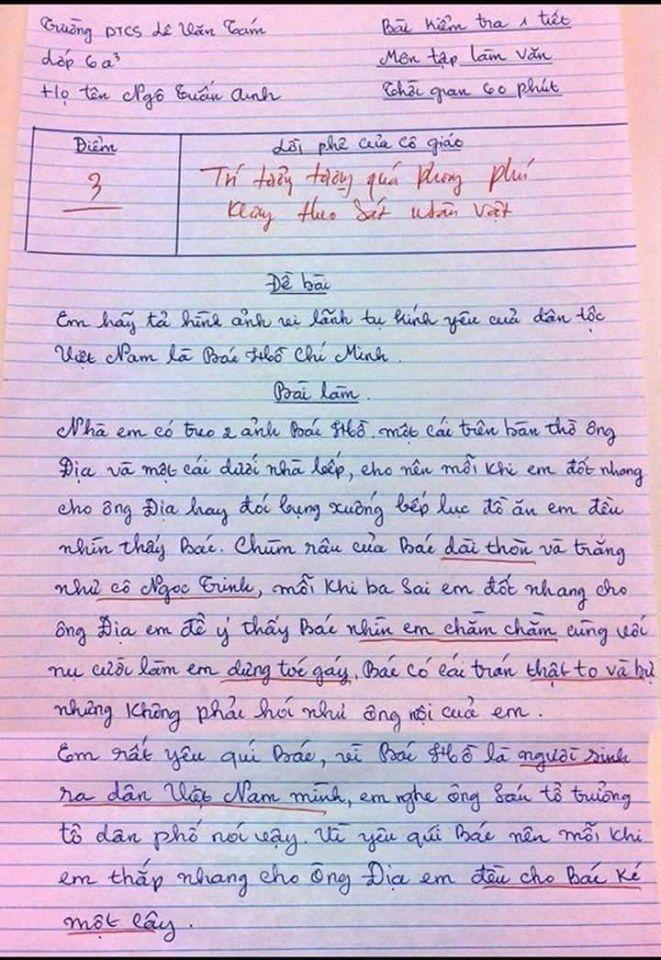 Trường PTCS Lê Văn Tám
Bài kiểm tra 1 tiết
Lớp 6a³
Môn tập làm văn
Họ tên Ngô Tuấn Anh
Thời gian 60 phút
Điểm
Lời phê của cô giáo
3
Trí tưởng tượng quá phong phú
Không theo sát nhân vật
Đề bài
Em hãy tả hình ảnh vị lãnh tụ kính yêu của dân tộc
Việt Nam là Bác Hồ Chí Minh.
Bài làm.
Nhà em có treo 2 ảnh Bác Hồ. một cái trên bàn thờ ông
Địa và một cái dưới nhà bếp, cho nên mỗi khi em đốt nhang
cho ông Địa hay đói bụng xuống bếp lục đồ ăn em đều
nhìn thấy Bác. Chùm râu của Bác dài thòn và trắng
như cô Ngọc Trinh, mỗi khi ba sai em đốt nhang cho
ông Địa em để ý thấy Bác nhìn em chằm chằm cùng với
nụ cười làm em dựng tóc gáy. Bác có cái trán thật to và bự
nhưng không phải hói như ông nội của em.
Em rất yêu quí Bác, vì Bác Hồ là người sinh
ra dân Việt Nam mình, em nghe ông Sáu tổ trưởng
tổ dân phố nói vậy. Vì yêu quí Bác nên mỗi khi
em thắp nhang cho Ông Địa em đều cho Bác ké
một cây.